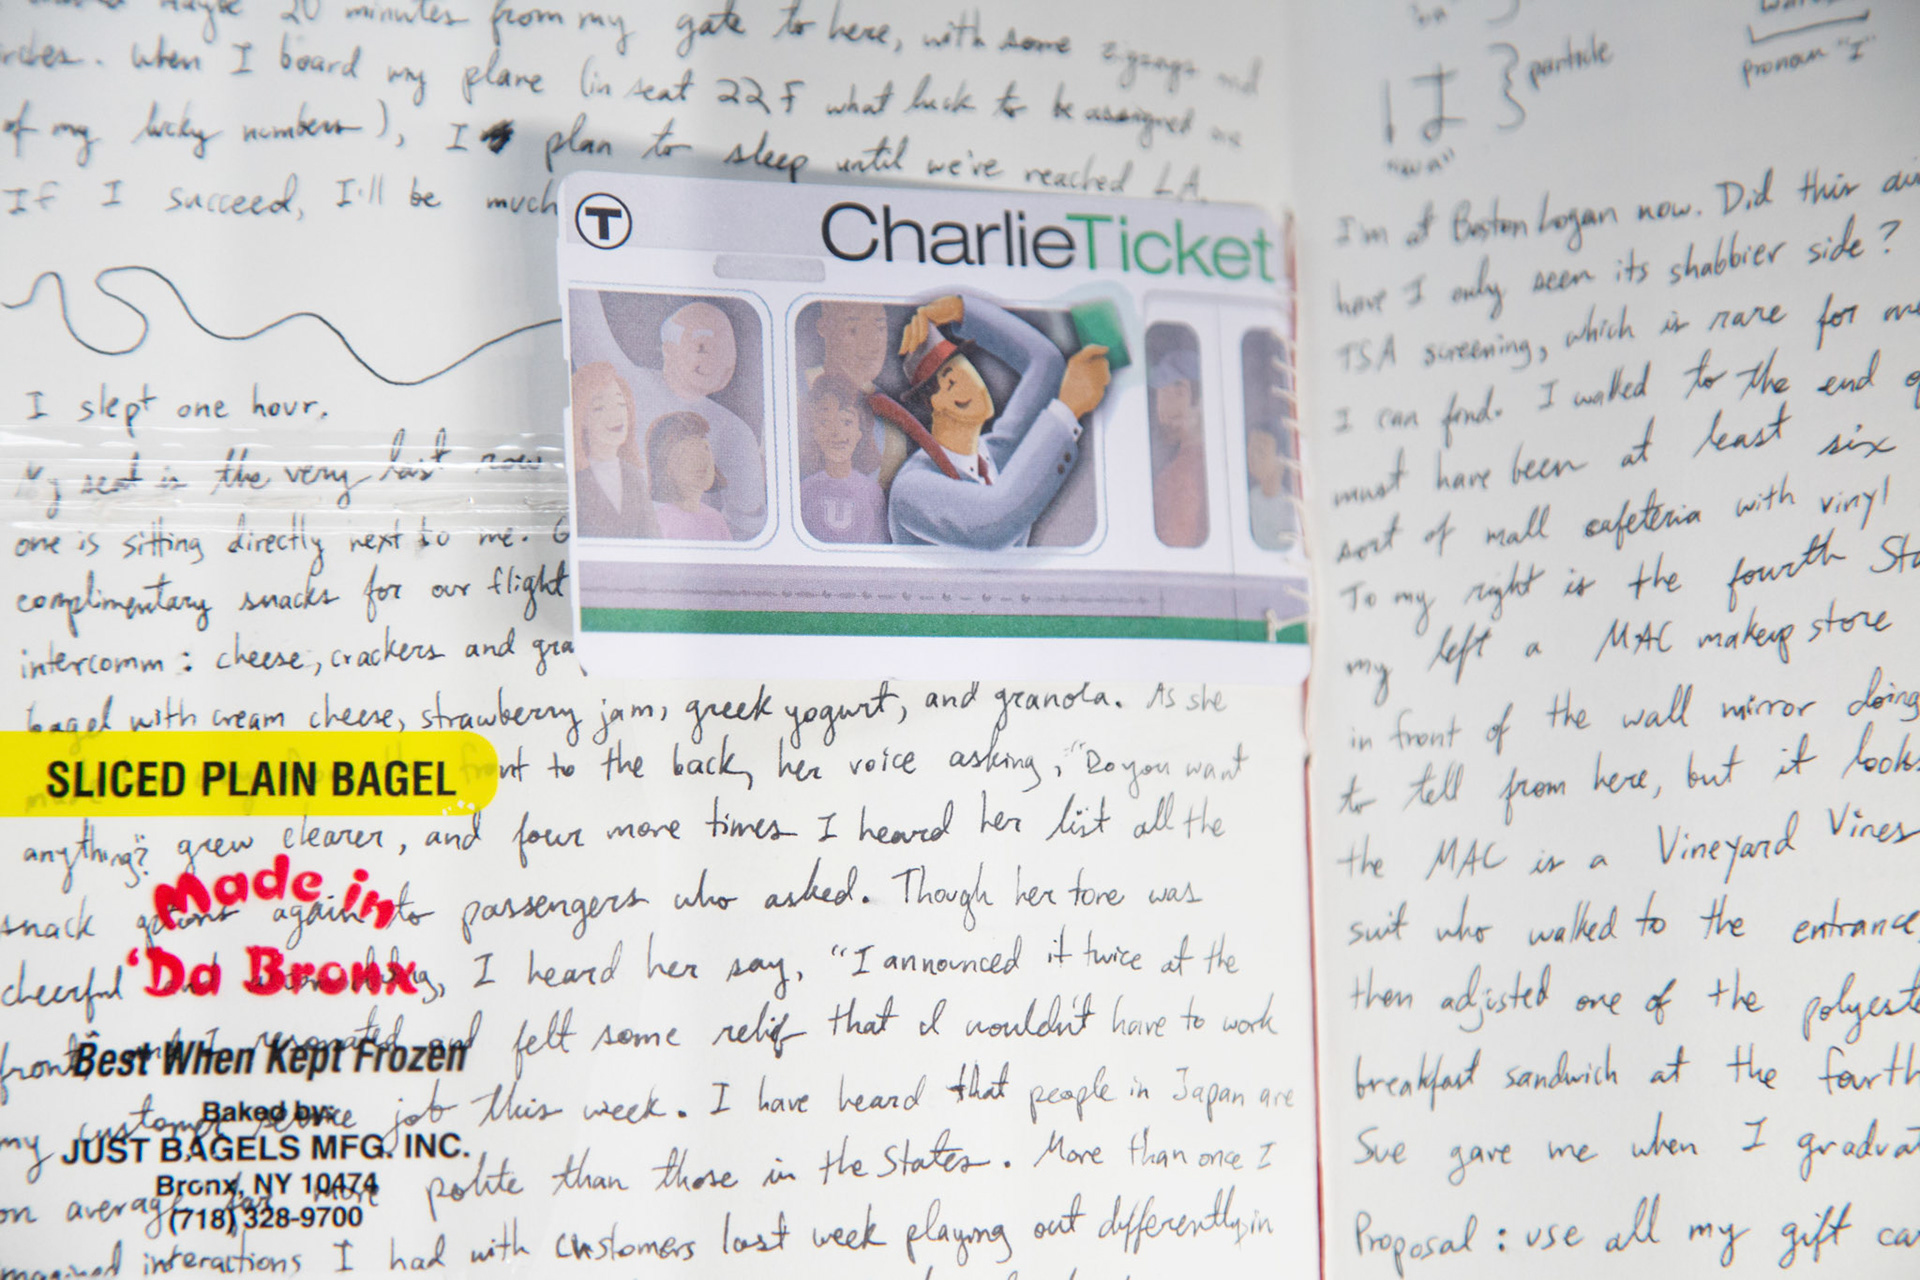 maybe 20 minutes from my gate to here, with some zigzags and
. When I board my plane (in seat 22F what luck to be assigned
of my lucky numbers), I plan to sleep until we've reached LA.
If I succeed, I'll be much
T CharlieTicket
U
I slept one hour.
My seat is the very last row
one is sitting directly next to me. G
complimentary snacks for our flight
intercomm: cheese, crackers and gra
bagel with cream cheese, strawberry jam, greek yogurt, and granola. As she
SLICED PLAIN BAGEL
front to the back, her voice asking, "Do you want
anything?" grew clearer, and four more times I heard her list all the
Made in
snack options again to passengers who asked. Though her tone was
'Da Bronx
cheerful and I heard her say, "I announced it twice at the
front," and I resonated and felt some relief that I wouldn't have to work
Best When Kept Frozen
my customer service job this week. I have heard that people in Japan are
Baked by:
JUST BAGELS MFG. INC.
Bronx, NY 10474
on average far more polite than those in the States. More than once I
(718) 328-9700
imagined interactions I had with customers last week playing out differently, in
particle
pronoun "I"
"wa"
I'm at Boston Logan now. Did this
have I only seen its shabbier side?
TSA screening, which is rare for me
I can find. I walked to the end of
must have been at least six
sort of mall cafeteria with vinyl
To my right is the fourth Sta
my left a MAC makeup store
in front of the wall mirror doing
to tell from here, but it looks
the MAC is a Vineyard Vines
suit who walked to the entrance,
then adjusted one of the polyest
breakfast sandwich at the fourth
Sue gave me when I graduat
Proposal: use all my gift ca